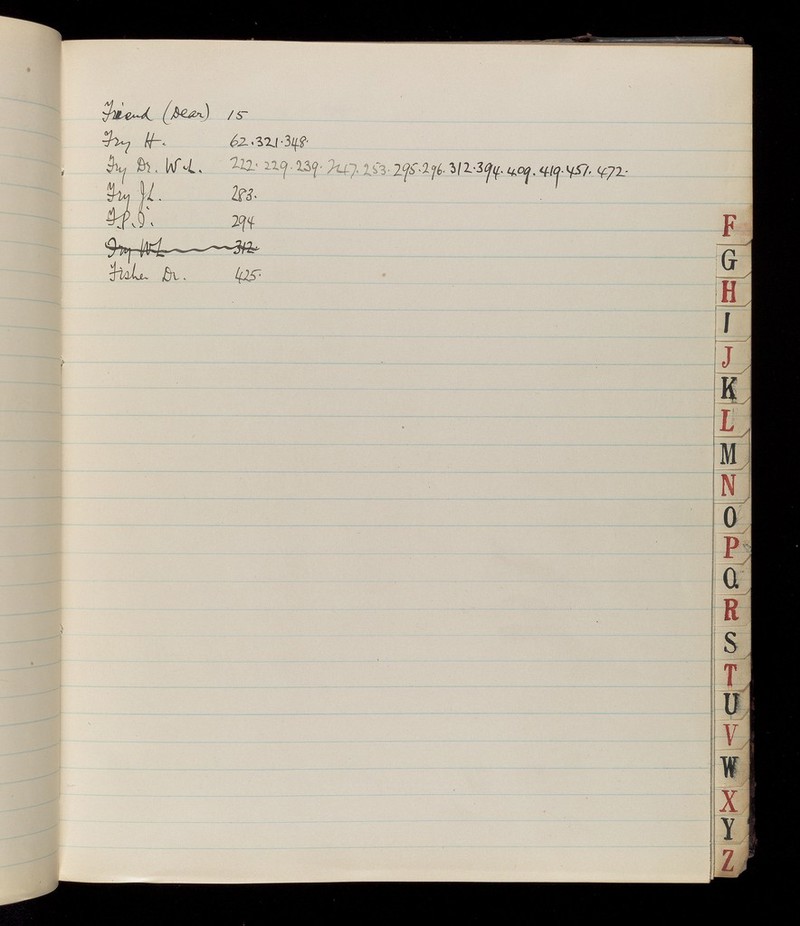 Friend (Dear) 15
Fry H. 62.321.348.
Fry Dr. W.L. 222. 229. 239. 247. 253. 295. 296. 312. 394. 409. 419. 451. 472.
Fry J.L. 283.
F.P.S. 294
Fry W.L 312
Fisher Dr. 425.
F
G
H
I
J
K
L
M
N
O
P
Q
R
S
T
U
V
W
X
Y
Z